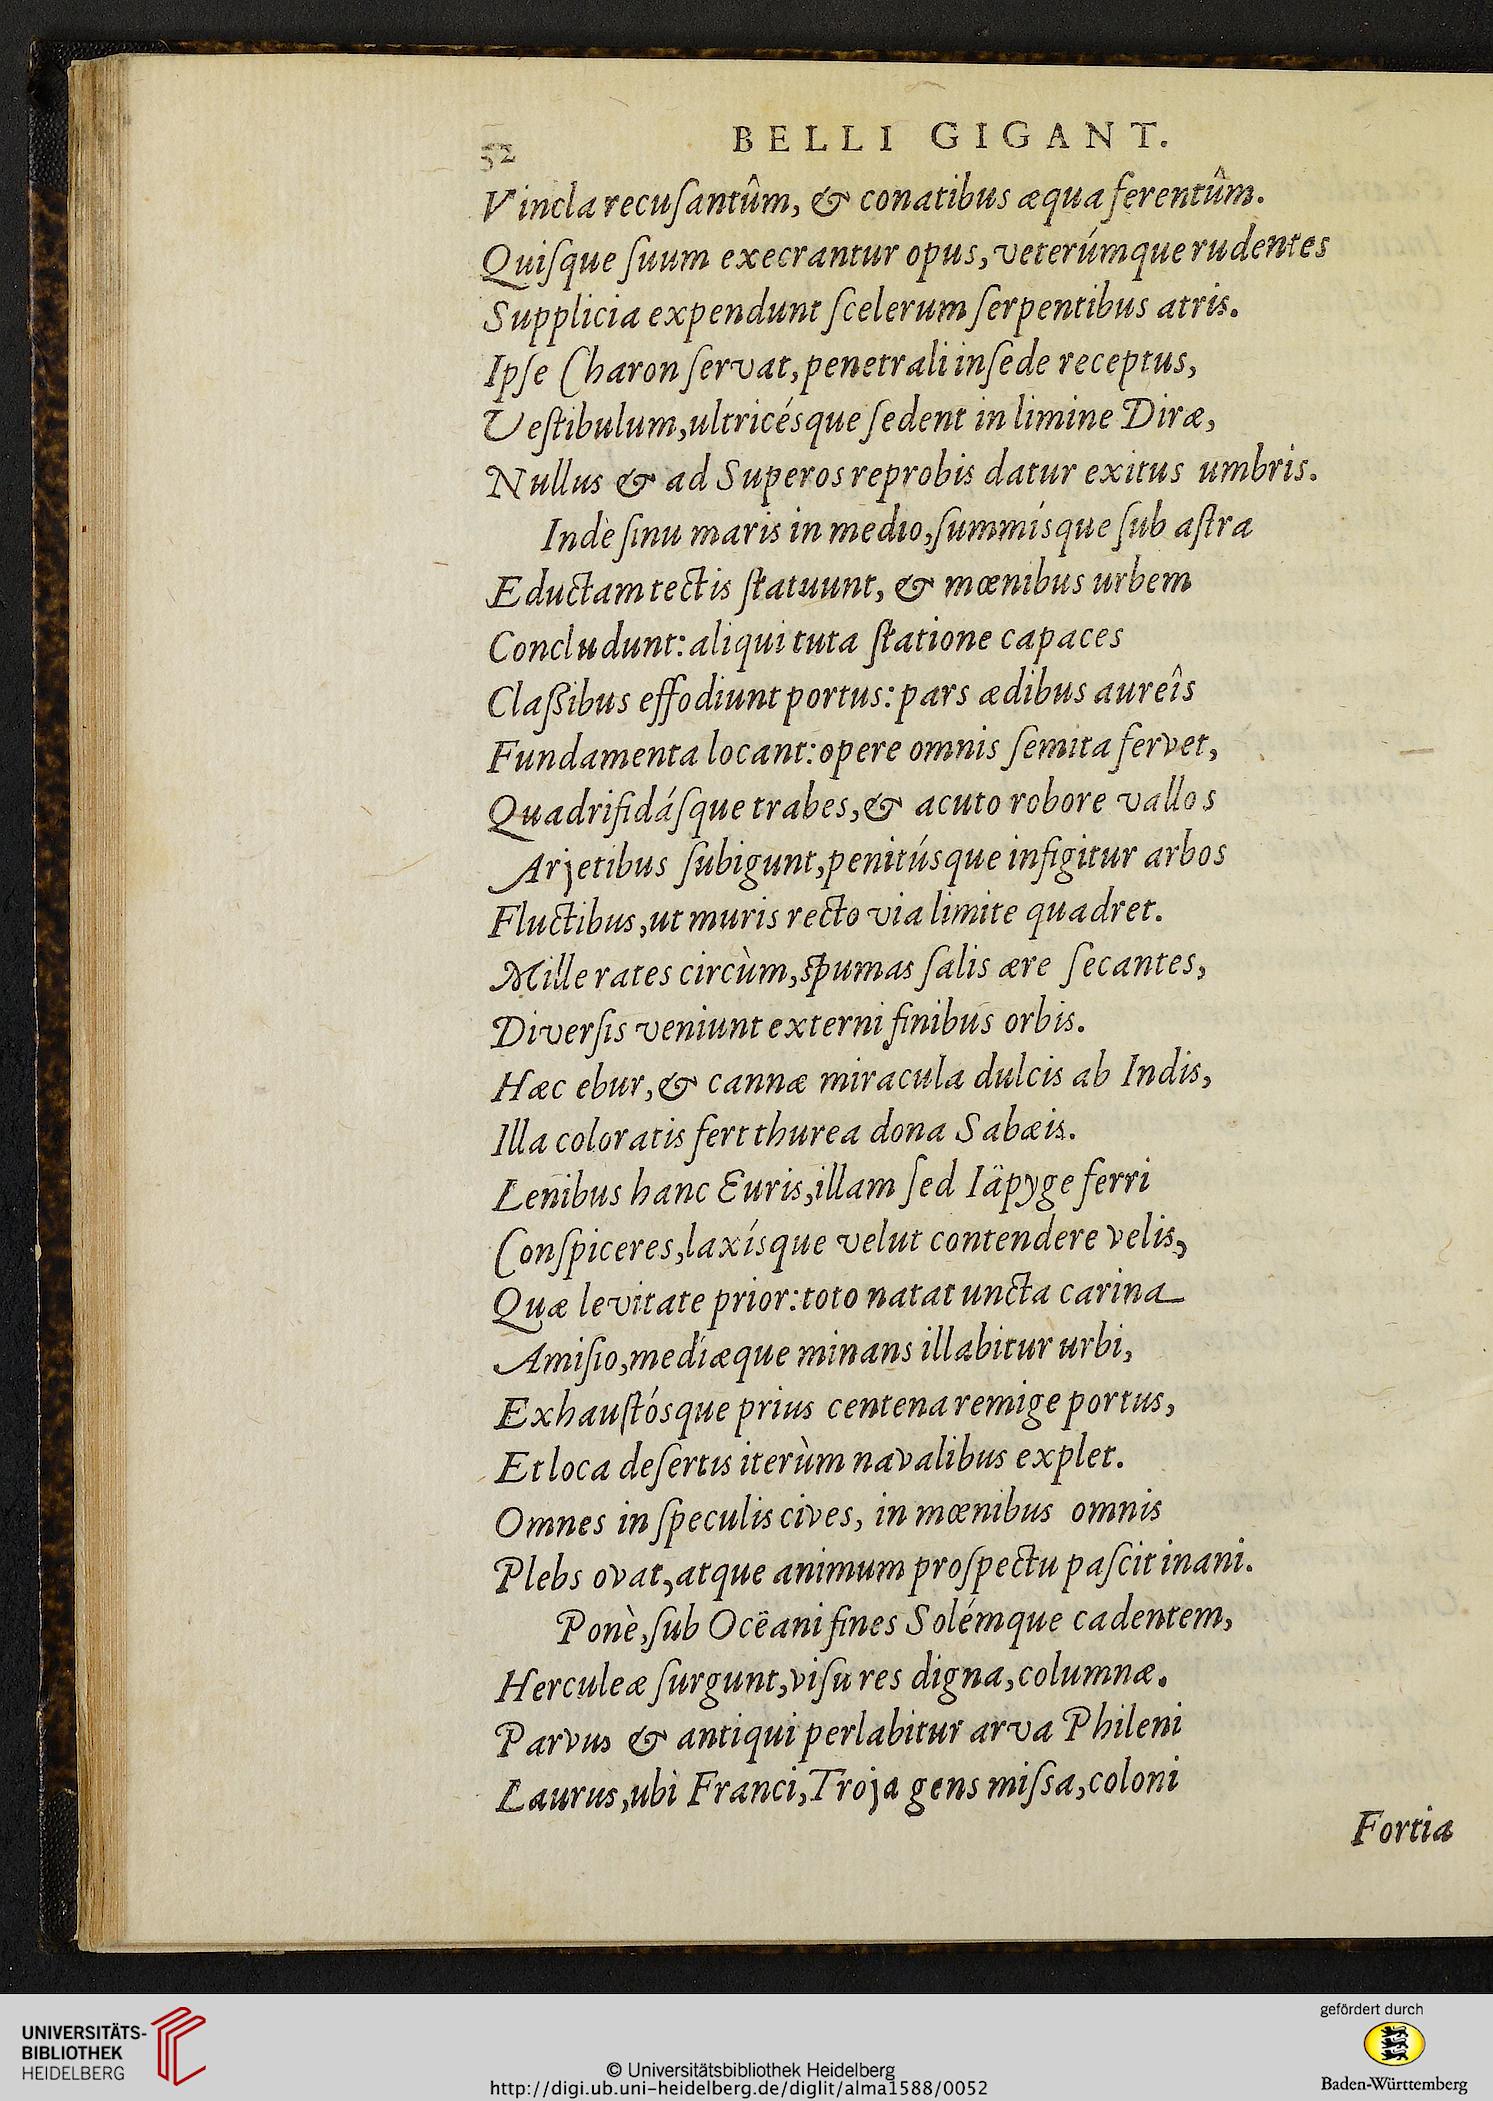 52
BELLI GIGANT.
Vincla recuſantûm, & conatibus æqua ferentûm.
Quiſque ſuum execrantur opus, veterúmque rudentes
Supplicia expendunt ſcelerum ſerpentibus atris.
Ipſe Charon ſervat, penetrali in ſede receptus,
Veſtibulum, ultricésque ſedent in limine Diræ,
Nullus & ad Superos reprobis datur exitus umbris.
Indè ſinu maris in medio, ſummísque ſub aſtra
Eductam tectis ſtatuunt, & mœnibus urbem
Concludunt: aliqui tuta ſtatione capaces
Claßibus effodiunt portus: pars ædibus aureîs
Fundamenta locant: opere omnis ſemita fervet,
Quadrifidáſque trabes, & acuto robore vallos
Arjetibus ſubigunt, penitúsque infigitur arbos
Fluctibus, ut muris recto via limite quadret.
Mille rates circùm, spumas ſalis ære ſecantes,
Diverſis veniunt externi finibus orbis.
Hæc ebur, & cannæ miracula dulcis ab Indis,
Illa coloratis fert thurea dona Sabæis.
Lenibus hanc Euris, illam ſed Iäpyge ferri
Conſpiceres, laxísque velut contendere velis,
Quæ levitate prior: toto natat uncta carina
Amiſio, medíæque minans illabitur urbi,
Exhauſtósque prius centena remige portus,
Et loca deſertis iterùm navalibus explet.
Omnes in ſpeculis cives, in mœnibus omnis
Plebs ovat, atque animum proſpectu paſcit inani.
Ponè, ſub Ocëani fines Solémque cadentem,
Herculeæ ſurgunt, viſu res digna, columnæ.
Parvus & antiqui perlabitur arva Phileni
Laurus, ubi Franci, Troja gens miſsa, coloni
Fortia
UNIVERSITÄTS-
BIBLIOTHEK
HEIDELBERG
© Universitätsbibliothek Heidelberg
http://digi.ub.uni-heidelberg.de/diglit/alma1588/0052
gefördert durch
Baden-Württemberg